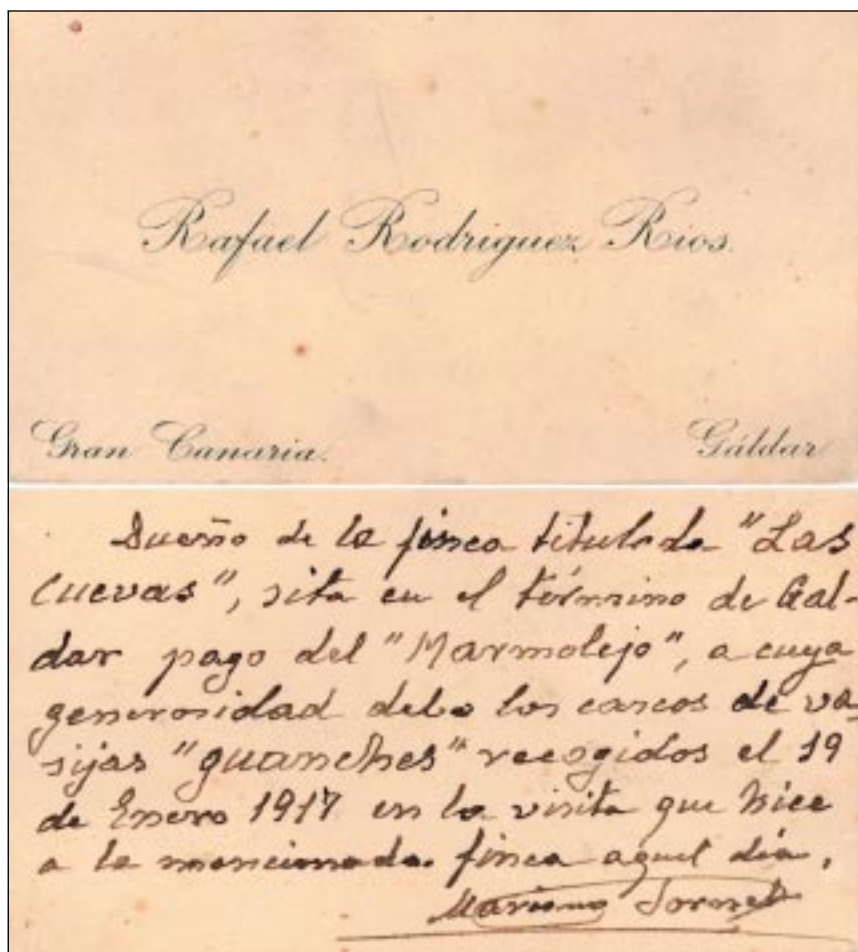 Rafael Rodriguez Rios.
Gran Canaria.
Gáldar
Dueño de la finca titulada "Las
Cuevas", sita en el término de Gal-
dar pago del "Marmolejo", a cuya
generosidad debo los cascos de va-
sijas "guanches" recogidos el 19
de Enero 1917 en la visita que hice
a la mencionada finca aquel día.
Mariano